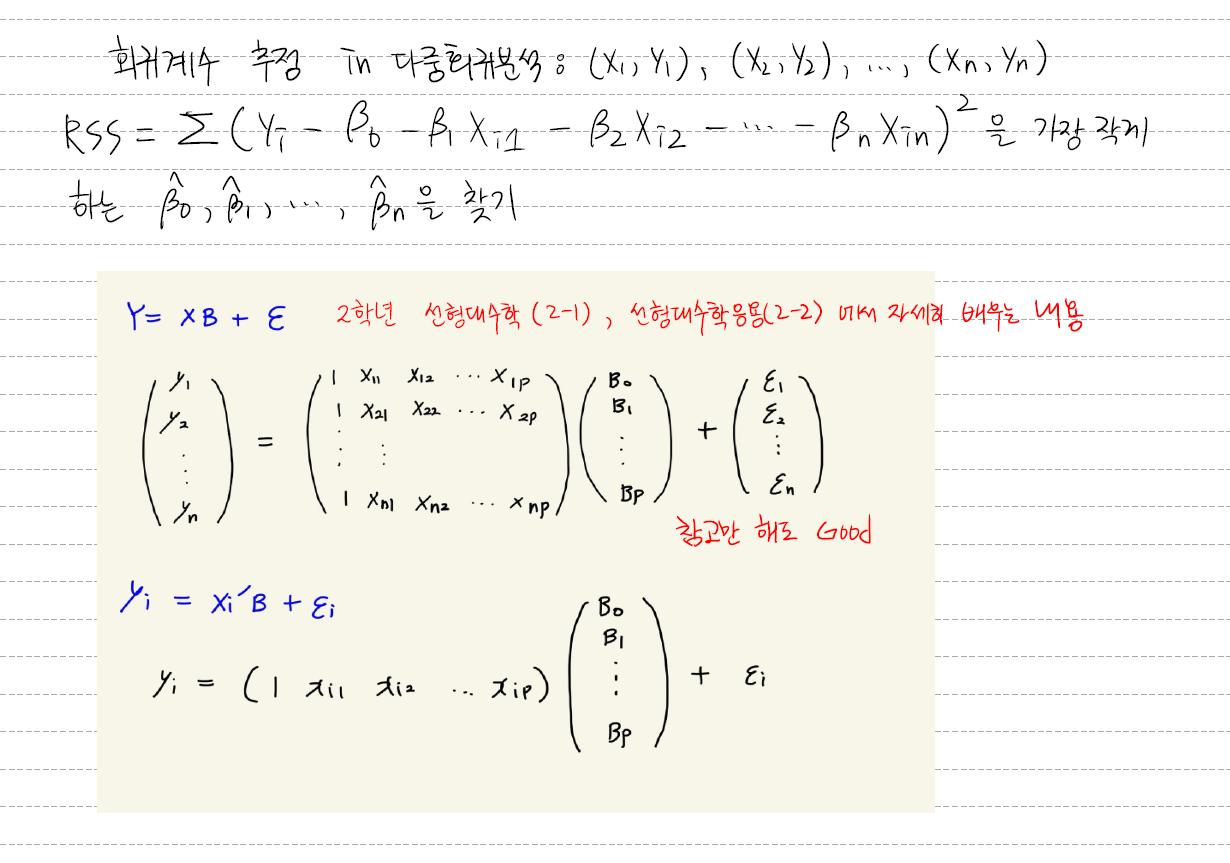 회귀계수 추정 in 다중회귀분석 : (X₁, Y₁), (X₂, Y₂), ..., (Xn, Yn)
RSS = Σ (Yi - β₀ - β₁Xi1 - β₂Xi2 - ... - βnXin)² 을 가장 작게
하는 β̂₀, β̂₁, ..., β̂n을 찾기
Y = XB + ε 2학년 선형대수학 (2-1), 선형대수학응용(2-2) 에서 자세히 배우는 내용
y₁ 1 x₁₁ x₁₂ ... x₁p B₀ ε₁
y₂ 1 x₂₁ x₂₂ ... x₂p B₁ ε₂
⋮ = ⋮ ⋮ ⋮ + ⋮
yn 1 xn1 xn2 ... xnp Bp εn
참고만 해도 Good
yi = xi′B + εi
yi = (1 xi1 xi2 ... xip) B₀ B₁ ⋮ Bp + εi